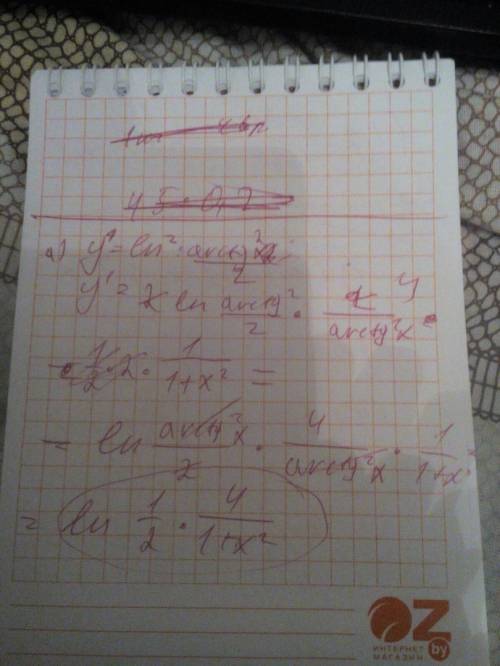 45 · 0,2
a) y' = ln² · arctg²x / 2
y' = 2 ln arctg² / 2 · 4 / arctg²x =
= 1/2 · 2 · 1 / 1+x² =
= ln arctg²x / 2 · 4 / arctg²x · 1 / 1+x²
= ln 1/2 · 4 / 1+x²
OZ
by
ИНТЕРНЕТ
МАГАЗИН